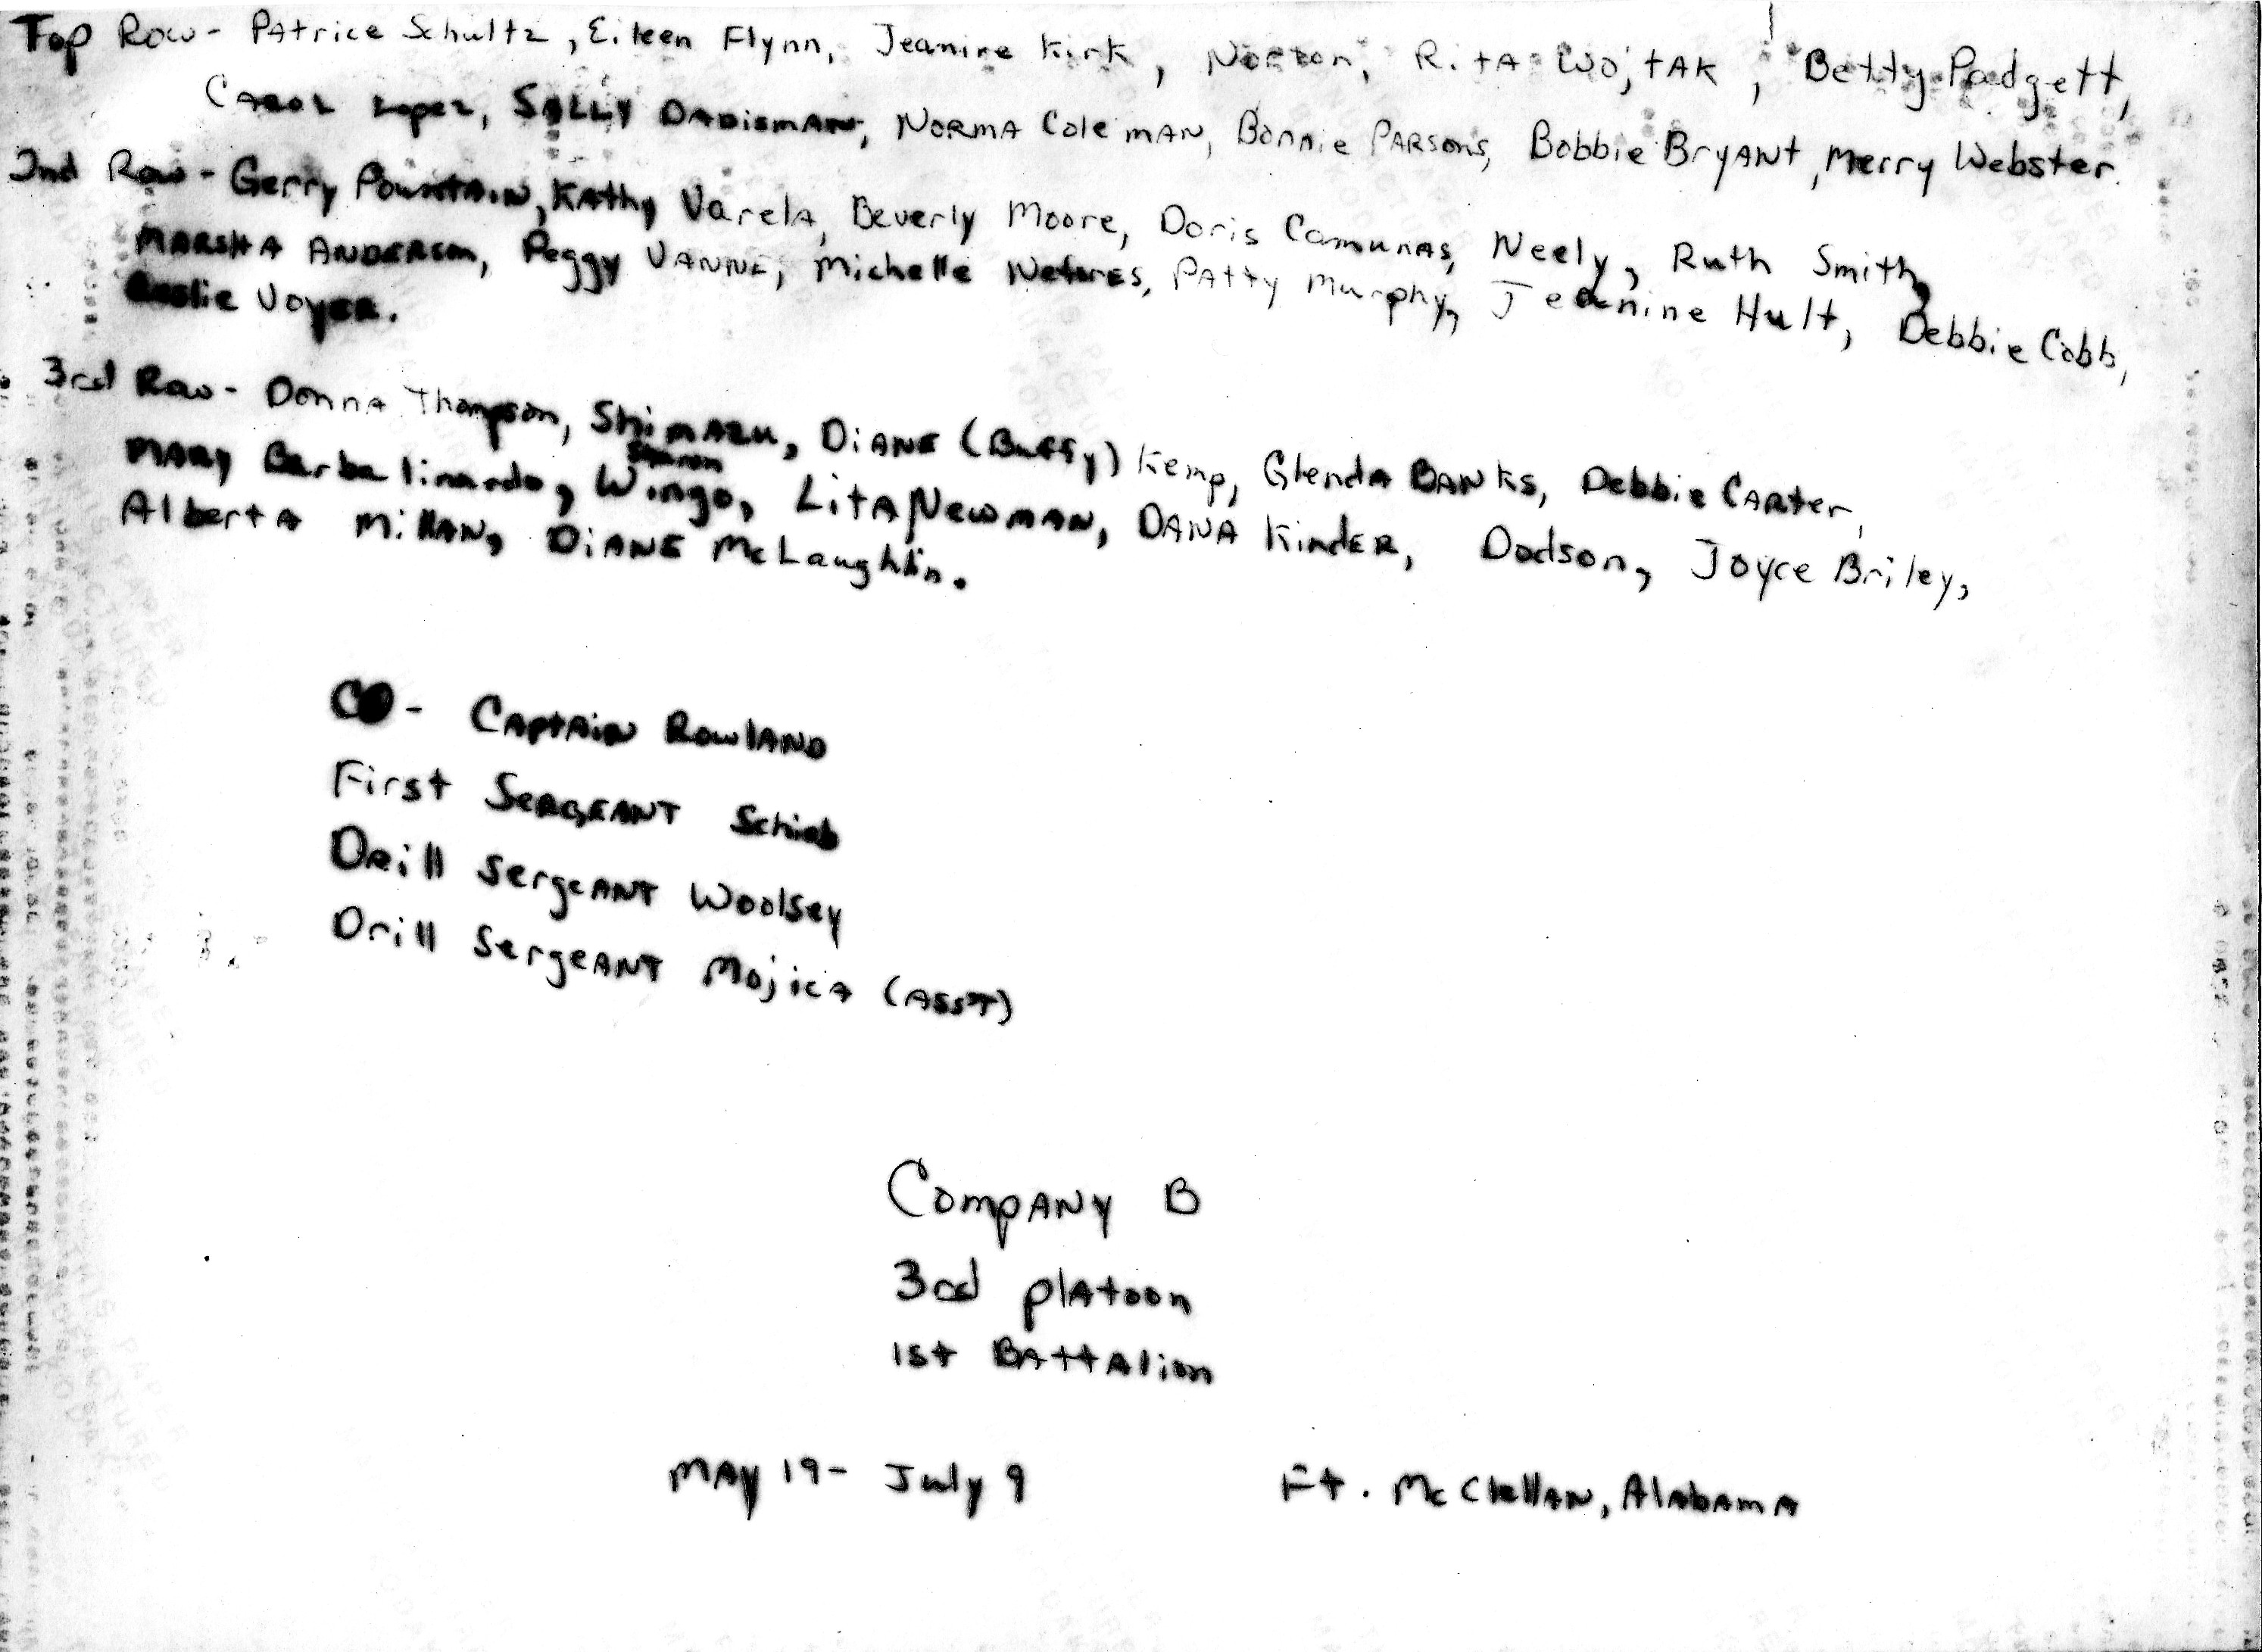 Top Row - Patrice Schultz, Eileen Flynn, Jeanine Kirk, Norton, Rita Wojtak, Betty Padgett,
Carol Lopez, Sally Dadisman, Norma Coleman, Bonnie Parsons, Bobbie Bryant, Merry Webster.
2nd Row - Gerry Pountain, Kathy Varela, Beverly Moore, Doris Camunas, Neely, Ruth Smith,
Marsha Anderson, Peggy Vanne, Michelle Patty Murphy, Jeanine Hult, Debbie Cobb,
Leslie Voyer.
3rd Row - Donna Thompson, Shimazu, Diane (Buffy) Kemp, Glenda Banks, Debbie Carter,
Mary Barbalinardo, Sharon Wingo, Lita Newman, Dana Kinder, Dodson, Joyce Briley,
Alberta Millan, Diane McLaughlin.
CO - Captain Rowland
First Sergeant
Drill Sergeant Woolsey
Drill Sergeant Mojica (Asst)
Company B
3rd platoon
1st Battalion
May 19 - July 9 Ft. McClellan, Alabama